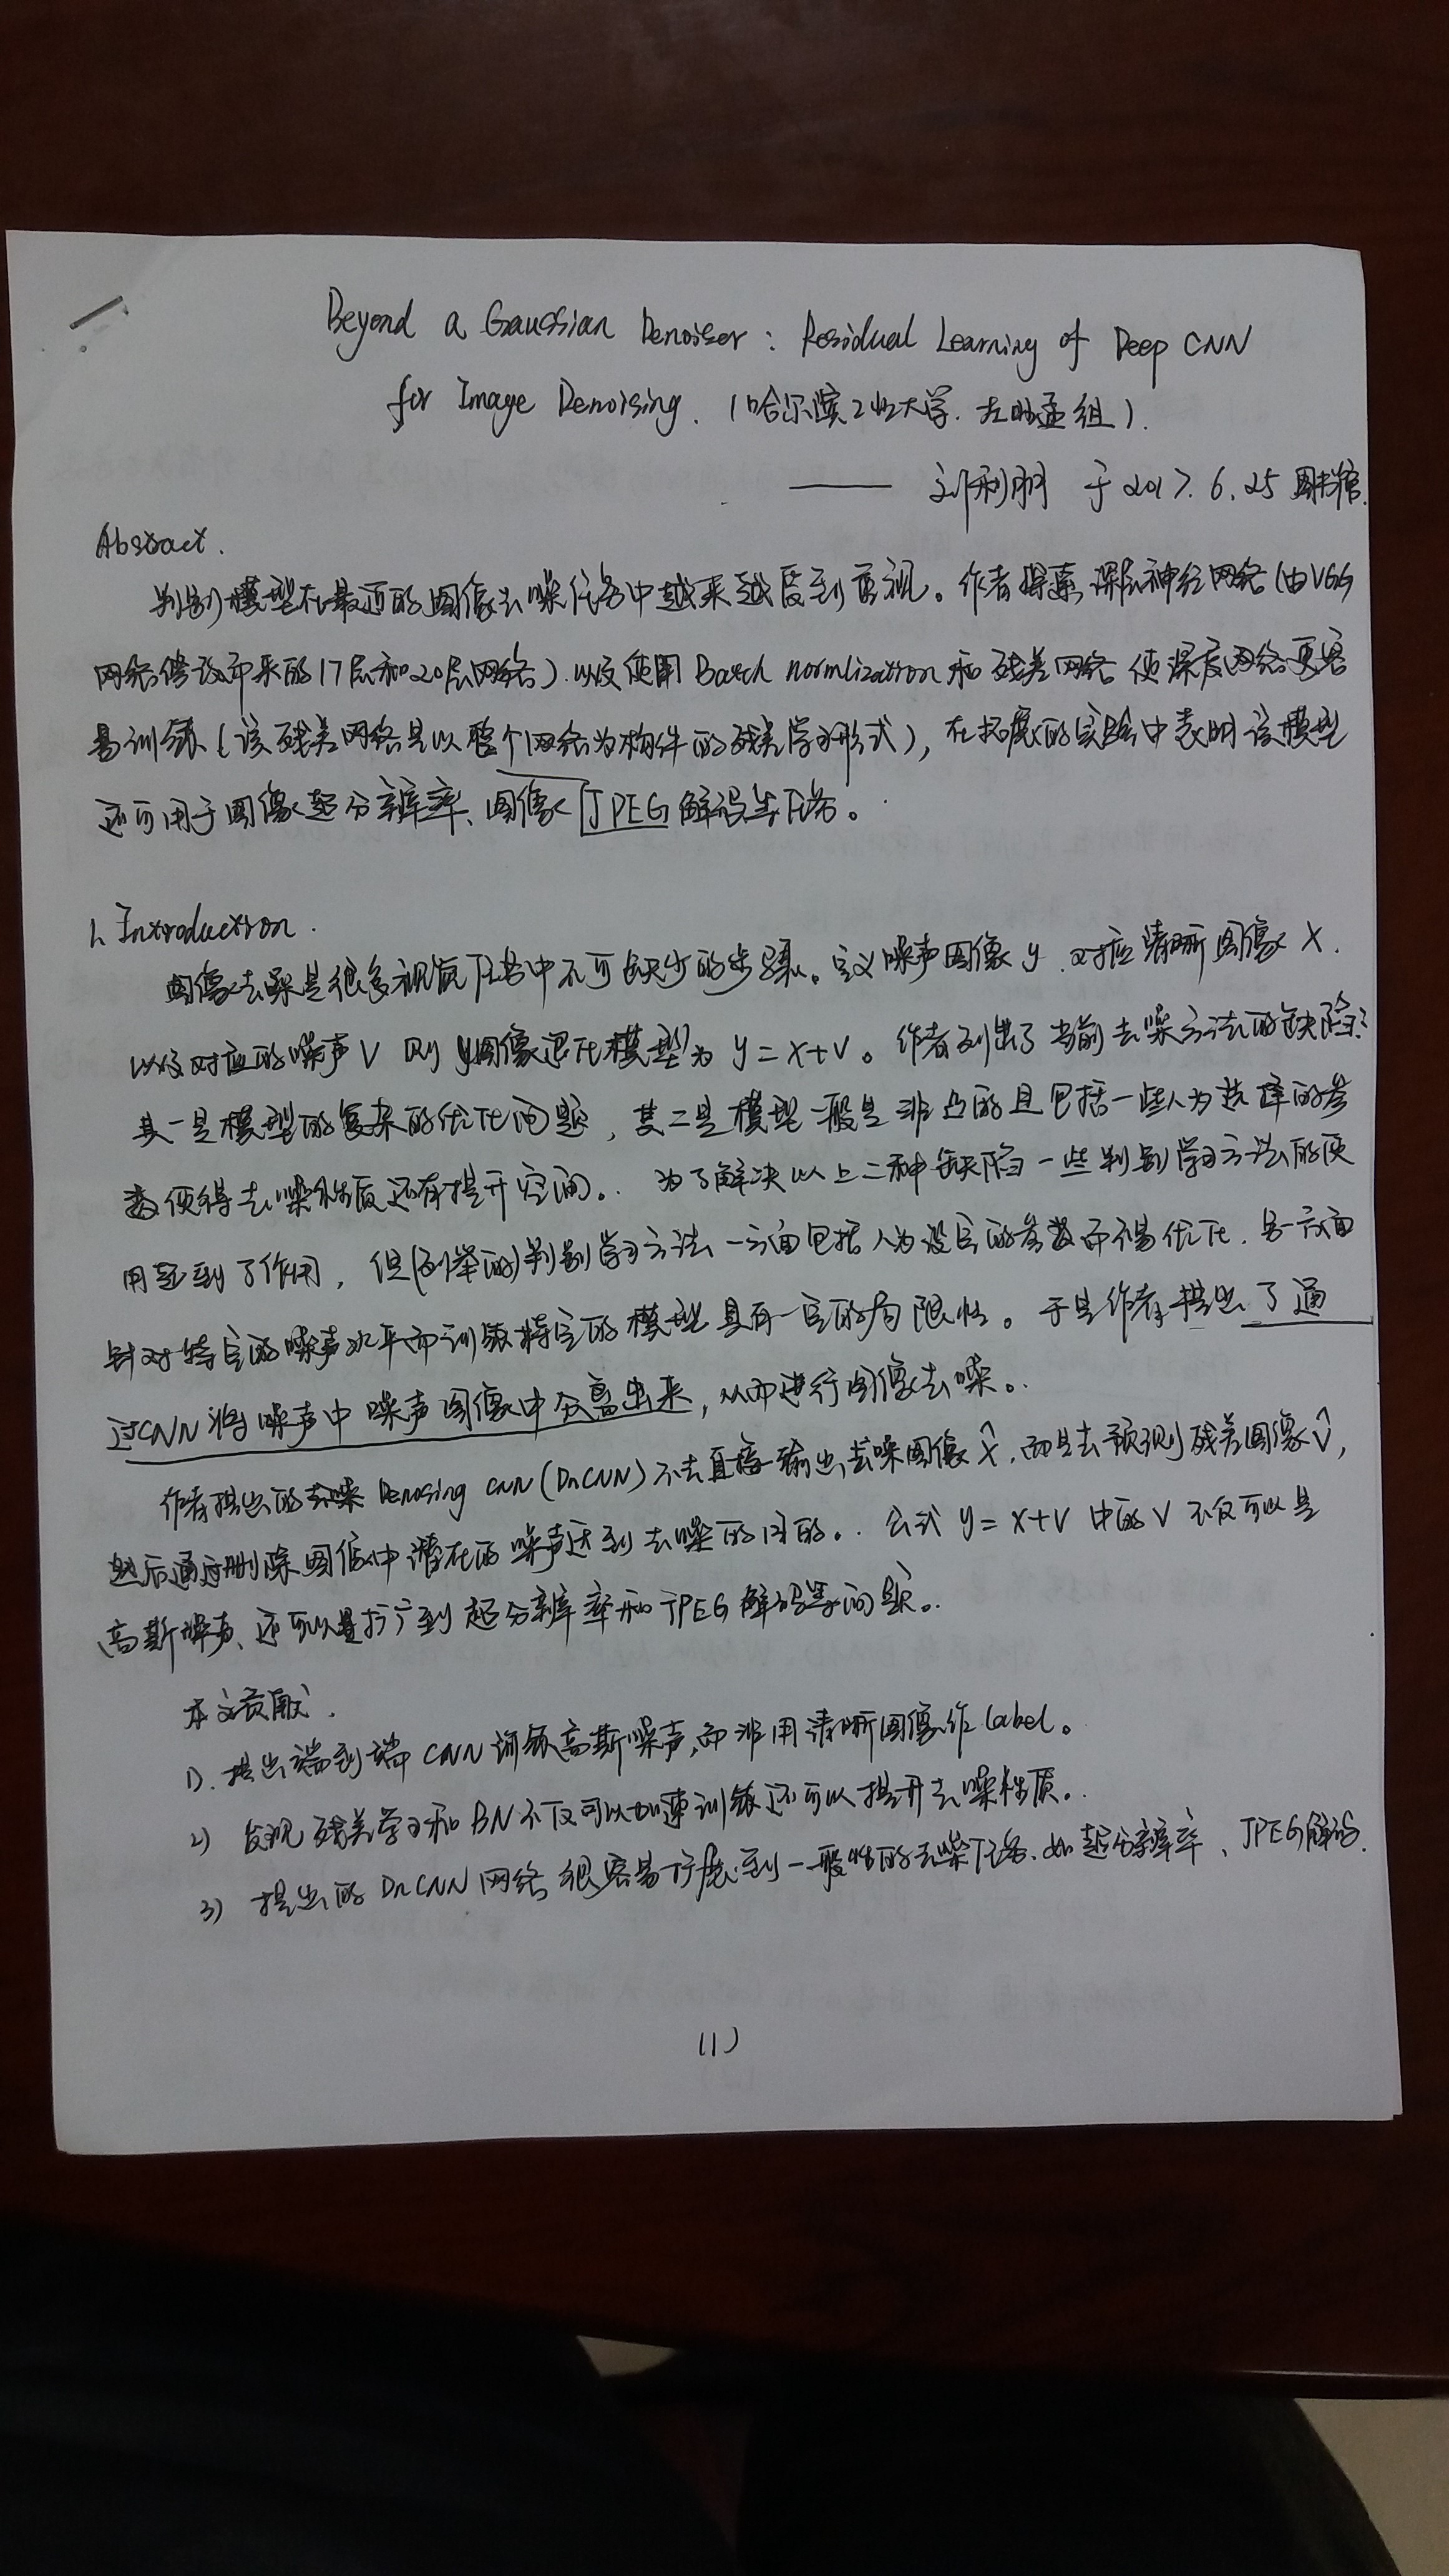 Beyond a Gaussian Denoiser: Residual Learning of Deep CNN
for Image Denoising. (哈尔滨工业大学. 左旺孟组).
—— 刘利朋 于2017.6.25图书馆.
Abstract.
判别模型在最近的图像去噪任务中越来越受到重视。作者探索深层神经网络(由VGG
网络修改而来的17层和20层网络).以及使用Batch normlization和残差网络使深度网络更容
易训练(该残差网络是以整个网络为构件的残差学习形式),在拓展的实验中表明该模型
还可用于图像超分辨率、图像JPEG解码等任务。
1. Introduction.
图像去噪是很多视觉任务中不可缺少的步骤。定义噪声图像y.对应清晰图像X.
以及对应的噪声V 则y图像退化模型为y=x+v。作者列出了当前去噪方法的缺陷:
其一是模型的复杂的优化问题,其二是模型一般是非凸的且包括一些人为选择的参
数使得去噪性质还有提升空间。为了解决以上二种缺陷一些判别学习方法的使
用起到了作用,但(列举的)判别学习方法一方面包括人为设定的参数而不易优化.另一方面
针对特定的噪声水平而训练特定的模型具有一定的局限性。于是作者提出了通
过CNN将噪声中噪声图像中分离出来,从而进行图像去噪。
作者提出的去噪Denosing CNN(DnCNN)不去直接输出去噪图像x̂,而是去预测残差图像v̂,
然后通过删除图像中潜在的噪声达到去噪的目的。公式y=x+v中的v不仅可以是
高斯噪声、还可以是扩广到超分辨率和JPEG解码等问题。
本文贡献.
1).提出端到端CNN训练高斯噪声,而非用清晰图像作label。
2) 发现残差学习和BN不仅可以加速训练还可以提升去噪性质。
3) 提出的DnCNN网络很容易扩展到一般性的去噪任务.如超分辨率、JPEG解码.
(1)